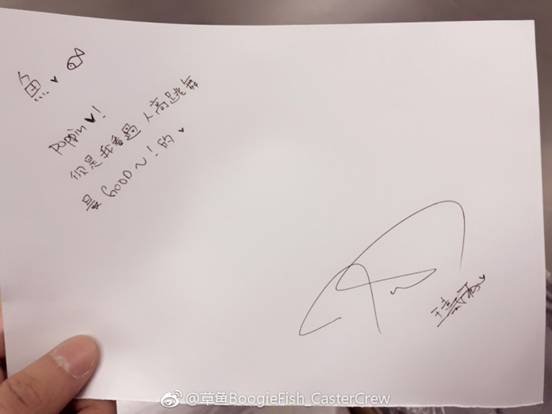 魚
Poppin ♥!
你是我看過 人高跳舞
最 GOOD~!的 ♥
@草鱼BoogieFish_CasterCrew